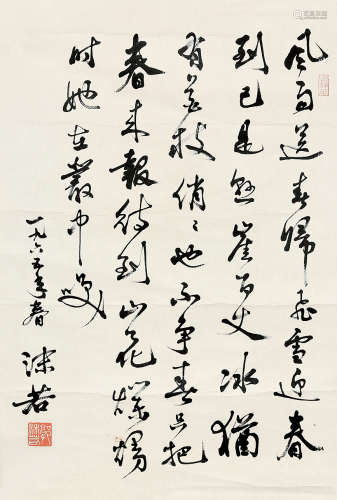 风雨送春归飞雪迎春
到已是悬崖百丈冰犹
有花枝俏俏也不争春只把
春来报待到山花烂熳
时她在丛中笑
一九六五年春
沫若